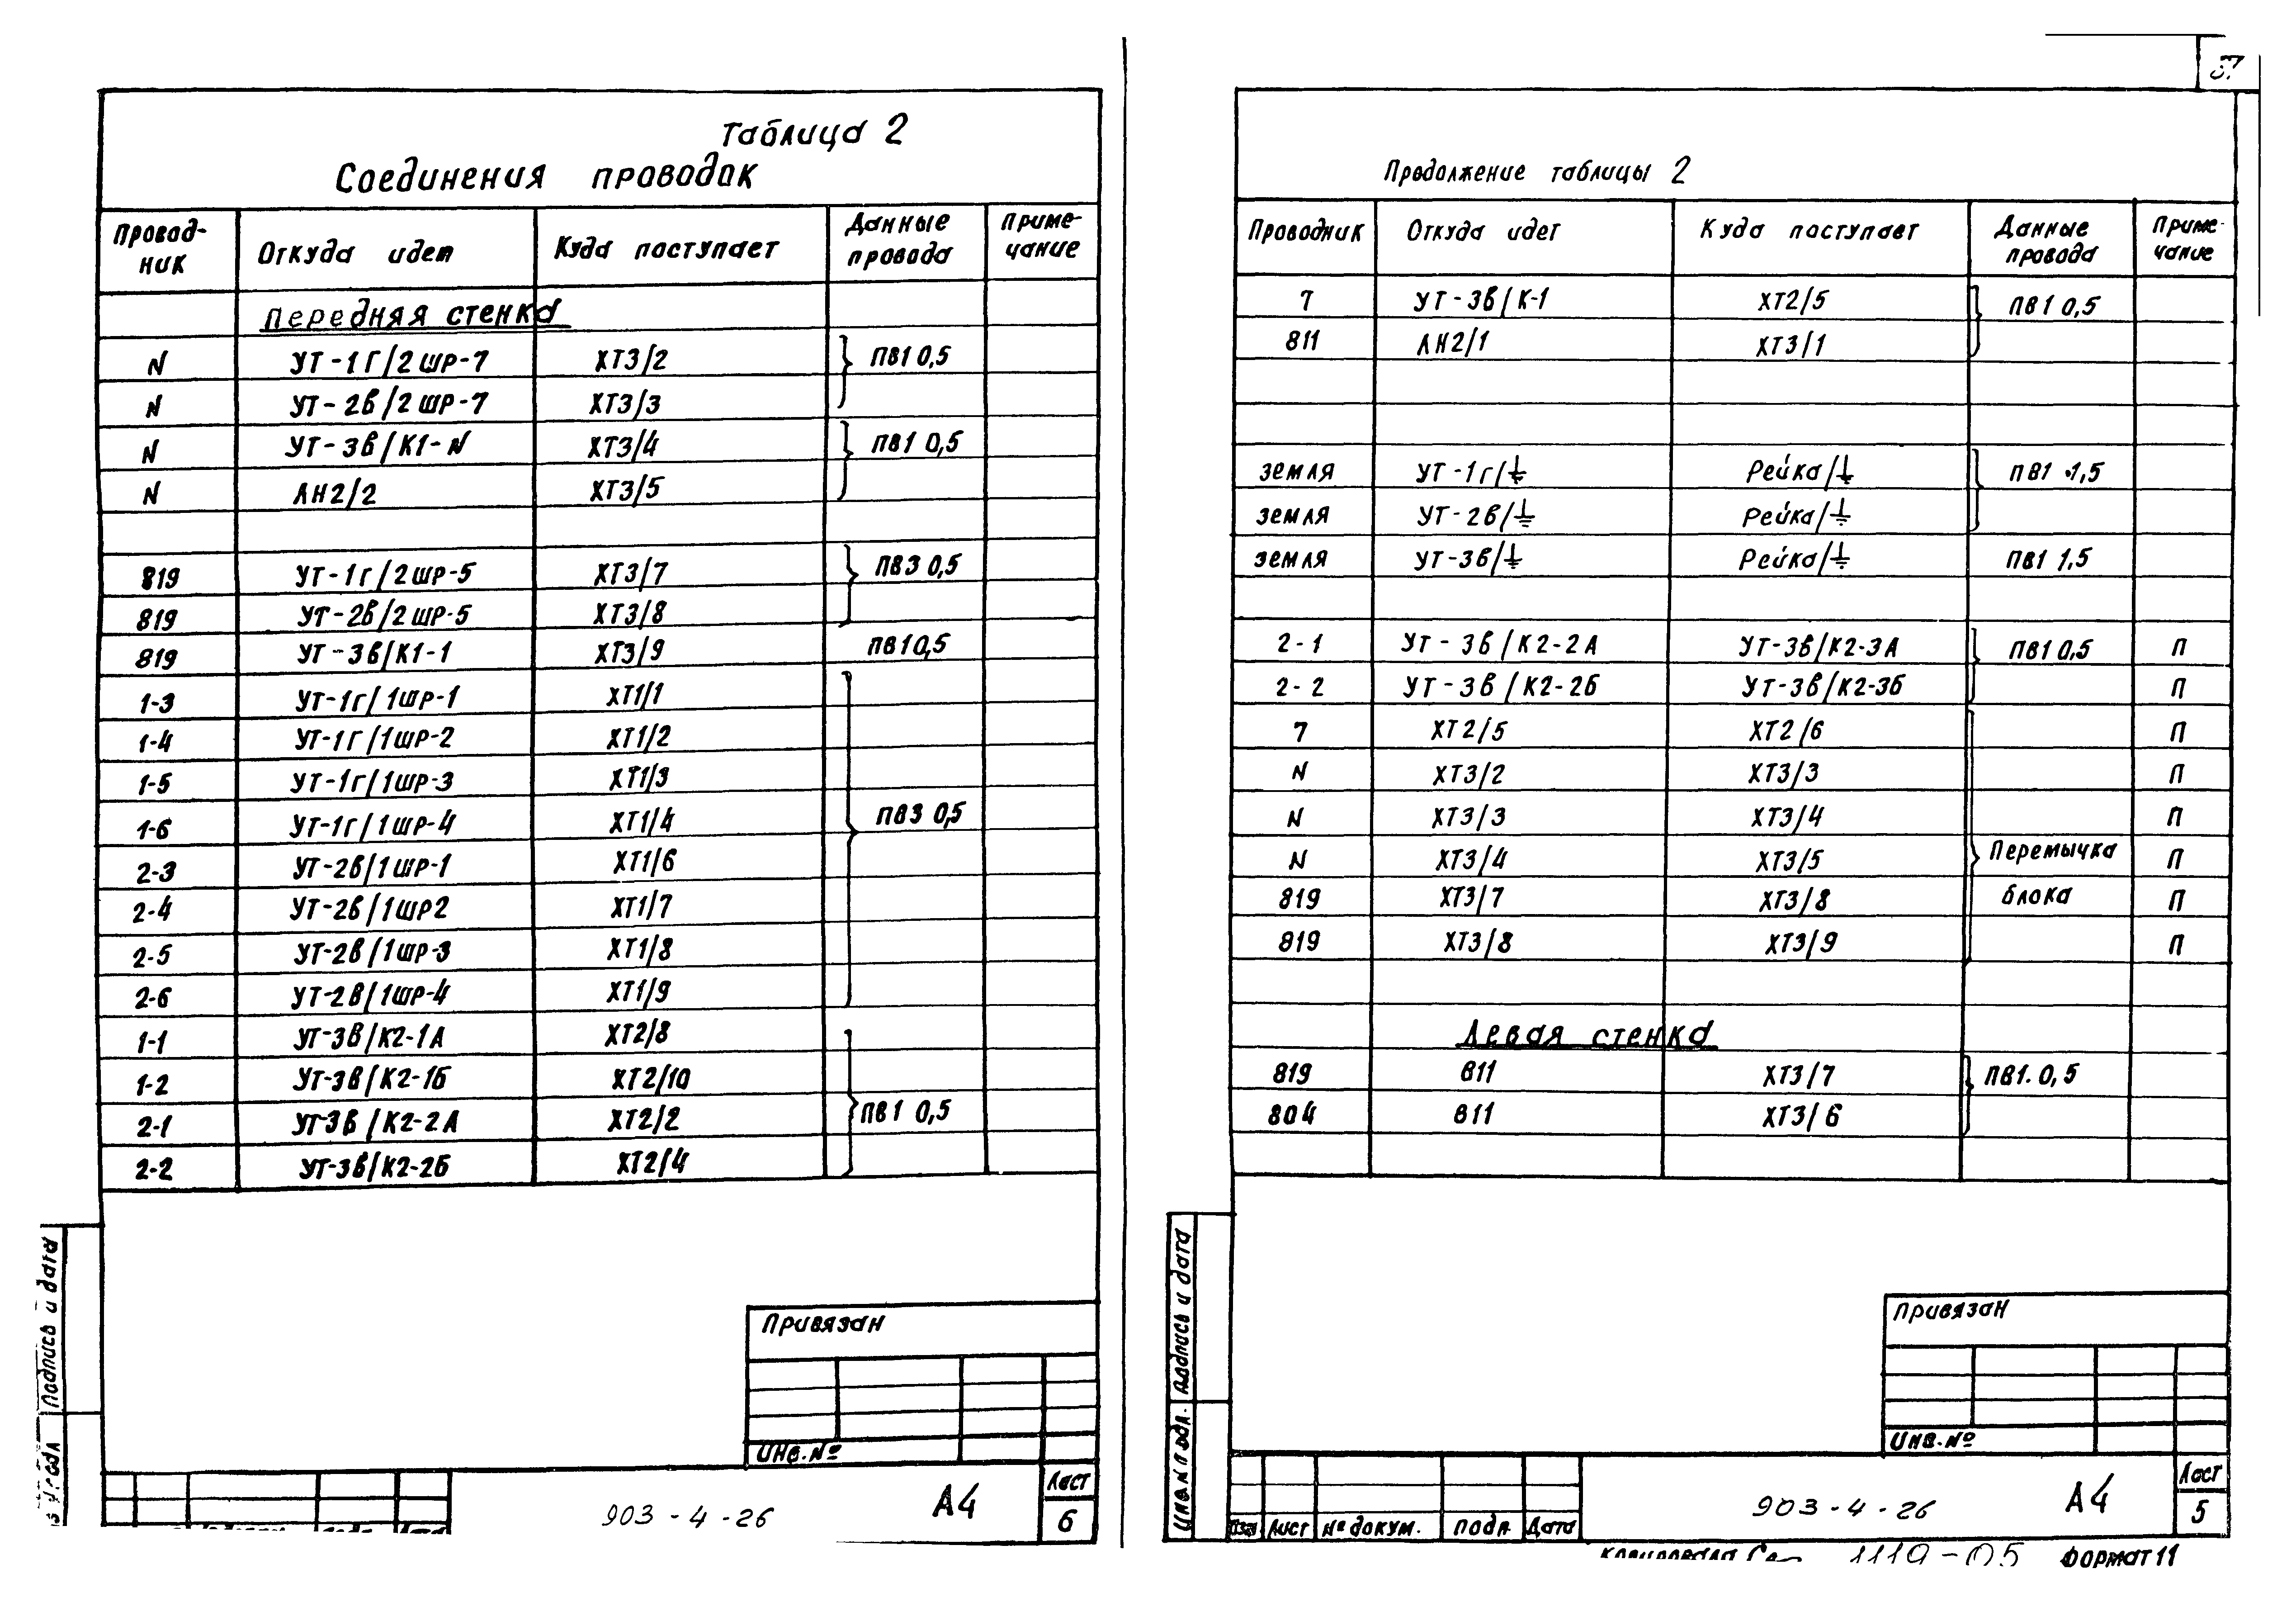 Таблица 2
Соединения проводок
Провод-
ник
Откуда идет
Куда поступает
Данные
провода
Приме-
чание
Передняя стенка
N УТ-1Г/2ШР-7 ХТ3/2 ПВ1 0,5
N УТ-2В/2ШР-7 ХТ3/3
N УТ-3В/К1-N ХТ3/4 ПВ1 0,5
N ЛН2/2 ХТ3/5
819 УТ-1г/2ШР-5 ХТ3/7 ПВ3 0,5
819 УТ-2В/2ШР-5 ХТ3/8
819 УТ-3В/К1-1 ХТ3/9 ПВ1 0,5
1-3 УТ-1г/1ШР-1 ХТ1/1
1-4 УТ-1Г/1ШР-2 ХТ1/2
1-5 УТ-1г/1ШР-3 ХТ1/3
1-6 УТ-1г/1ШР-4 ХТ1/4 ПВ3 0,5
2-3 УТ-2В/1ШР-1 ХТ1/6
2-4 УТ-2В/1ШР2 ХТ1/7
2-5 УТ-2В/1ШР-3 ХТ1/8
2-6 УТ-2В/1ШР-4 ХТ1/9
1-1 УТ-3В/К2-1А ХТ2/8
1-2 УТ-3В/К2-1Б ХТ2/10
2-1 УТ-3В/К2-2А ХТ2/2 ПВ1 0,5
2-2 УТ-3В/К2-2Б ХТ2/4
Подпись и дата
Привязан
Инв.№
903-4-26
А4
Лист
6
37
Продолжение таблицы 2
Проводник
Откуда идет
Куда поступает
Данные
провода
Приме-
чание
7 УТ-3В/К-1 ХТ2/5 ПВ1 0,5
811 ЛН2/1 ХТ3/1
земля УТ-1г/⏚ Рейка/⏚ ПВ1 1,5
земля УТ-2В/⏚ Рейка/⏚
земля УТ-3В/⏚ Рейка/⏚ ПВ1 1,5
2-1 УТ-3В/К2-2А УТ-3В/К2-3А ПВ1 0,5 П
2-2 УТ-3В/К2-2Б УТ-3В/К2-3Б П
7 ХТ2/5 ХТ2/6 П
N ХТ3/2 ХТ3/3 П
N ХТ3/3 ХТ3/4 П
N ХТ3/4 ХТ3/5 Перемычка П
819 ХТ3/7 ХТ3/8 блока П
819 ХТ3/8 ХТ3/9 П
Левая стенка
819 В11 ХТ3/7 ПВ1. 0,5
804 В11 ХТ3/6
Подпись и дата
Инв.№ подл.
Привязан
Инв.№
Изм Лист № докум. Подп Дата
903-4-26
А4
Лист
5
Копировала
1119-05
Формат 11